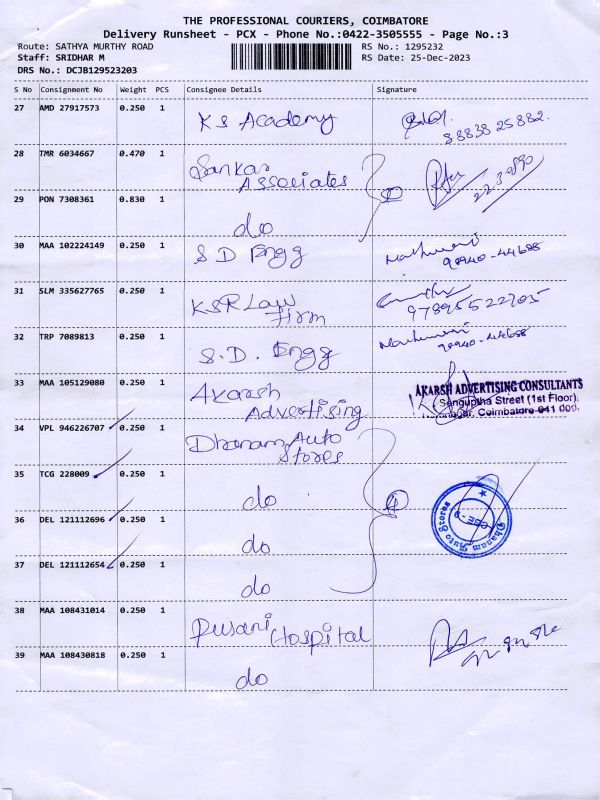 THE PROFESSIONAL COURIERS, COIMBATORE
Delivery Runsheet - PCX - Phone No.:0422-3505555 - Page No.:3
Route: SATHYA MURTHY ROAD RS No.: 1295232
Staff: SRIDHAR M RS Date: 25-Dec-2023
DRS No.: DCJB129523203
S No Consignment No Weight PCS Consignee Details Signature
27 AMD 27917573 0.250 1 KS Academy
88838 25882.
28 TMR 6034667 0.470 1 Sankar
Associates 2
29 PON 7308361 0.830 1 do
30 MAA 102224149 0.250 1 S D Engg
98940-44688
31 SLM 335627765 0.250 1 KSR Law
Firm 9789522705
32 TRP 7089813 0.250 1 S.D. Engg
98940-44688
33 MAA 105129080 0.250 1 Akarsh
Advertising
AKARSH ADVERTISING CONSULTANTS
Senguptha Street (1st Floor)
nagar, Coimbatore-641 009.
34 VPL 946226707 0.250 1 Dhanam Auto
Stores
35 TCG 228009 0.250 1 do 4
36 DEL 121112696 0.250 1 do
Dhanam Auto Stores
CBE - 9
37 DEL 121112654 0.250 1 do
38 MAA 108431014 0.250 1 Pusani
Hospital
39 MAA 108430818 0.250 1 do